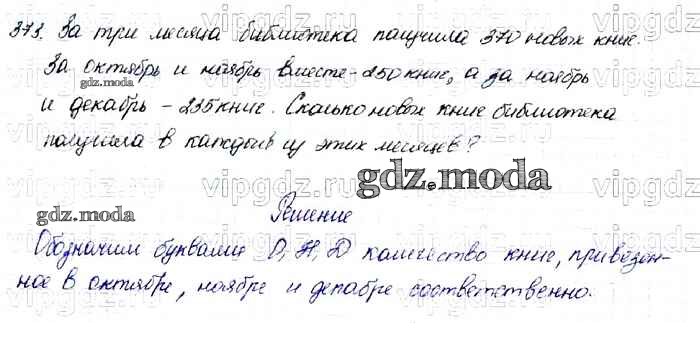 373. За три месяца библиотека получила 370 новых книг.
За октябрь и ноябрь вместе - 250 книг, а за ноябрь
и декабрь - 235 книг. Сколько новых книг библиотека
получила в каждый из этих месяцев?
gdz.moda
gdz.moda
gdz.moda
Решение
Обозначим буквами О, Н, Д количество книг, привезён-
ное в октябре, ноябре и декабре соответственно.